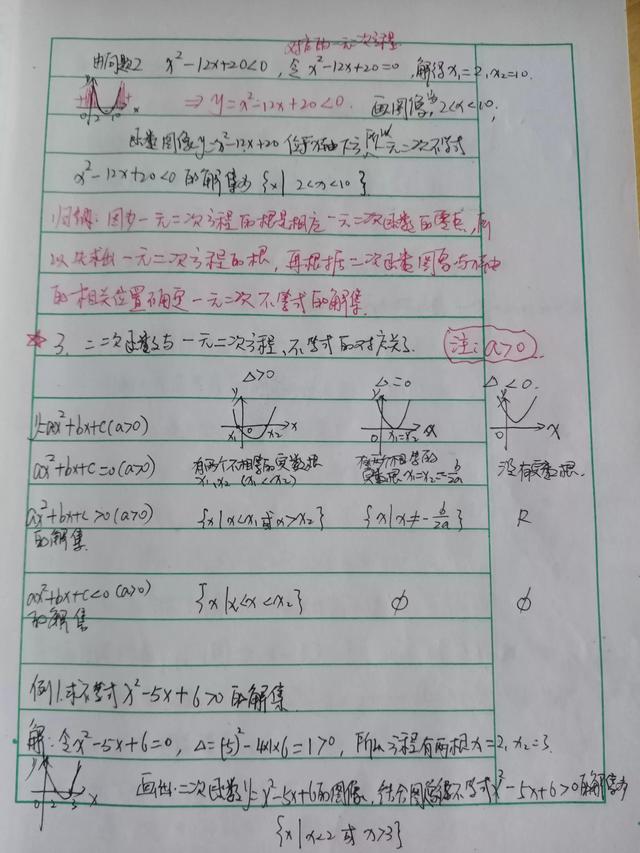 对应的一元二次方程
由问题2 x²-12x+20<0, 令x²-12x+20=0, 解得x₁=2, x₂=10.
⇒ y=x²-12x+20<0. 画图像 当 2<x<10,
0 2 10 x
函数图像y=x²-12x+20 位于x轴下方, 所以 一元二次不等式
x²-12x+20<0 的解集为{x| 2<x<10}.
归纳: 因为一元二次方程的根是相应一元二次函数的零点, 所
以先求出一元二次方程的根, 再根据二次函数图像与x轴
的相关位置确定一元二次不等式的解集.
3. 二次函数与一元二次方程, 不等式的对应关系. 注: a>0.
Δ>0 Δ=0 Δ<0.
y=ax²+bx+c(a>0) y x₁ 0 x₂ x y 0 x₁=x₂ x y 0 x
ax²+bx+c=0(a>0) 有两个不相等的实数根 有两个相等的 没有实数根.
x₁,x₂ (x₁<x₂) 实数根x₁=x₂=-b/2a
ax²+bx+c>0(a>0) {x|x<x₁或x>x₂} {x|x≠-b/2a} R
的解集
ax²+bx+c<0(a>0) {x|x₁<x<x₂} ϕ ϕ
的解集
例1.求不等式x²-5x+6>0的解集.
解: 令x²-5x+6=0, Δ=(-5)²-4×1×6=1>0, 所以方程有两根x₁=2, x₂=3.
画出二次函数y=x²-5x+6的图像, 结合图像得不等式x²-5x+6>0的解集为
0 2 3 x
{x|x<2 或 x>3}